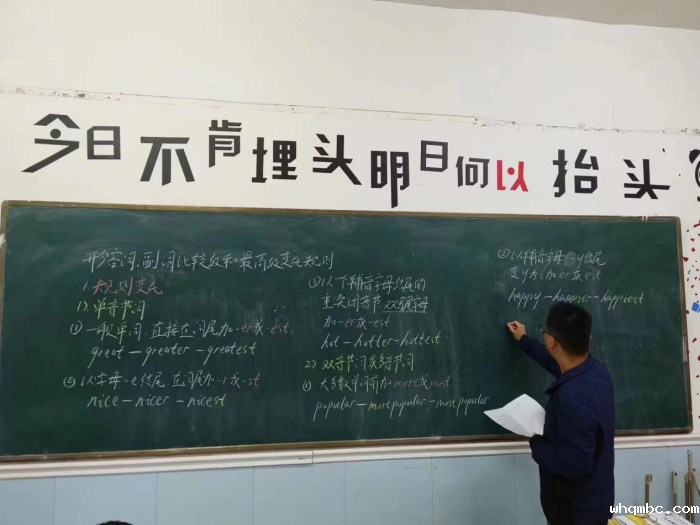 今日不肯埋头明日何以抬头
形容词、副词比较级和最高级变化规则
1. 规则变化
1). 单音节词
① 一般单词,直接在词尾加-er或-est.
great — greater — greatest
② 以字母-e结尾,在词尾加-r或-st
nice — nicer — nicest
③ 以下辅音字母结尾的
重读闭音节 双写辅字母
加-er或-est
hot — hotter — hottest
2) 双音节词或多音节词
① 大多数单词前加more或most
popular — more popular — most popular
② 以辅音字母-y结尾
变y为i加-er或-est
happy — happier — happiest
whqmbc.com